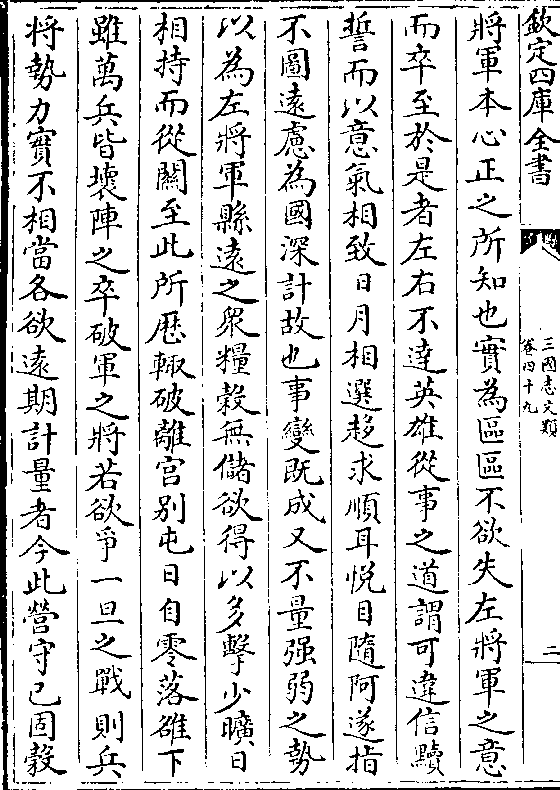 欽定四庫全書
三國志文類
卷四十九
二
將軍本心正之所知也實為區區不欲失左將軍之意
而卒至於是者左右不達英雄從事之道謂可違信黷
誓而以意氣相致日月相選趍求順耳悦目隨阿遂指
不圖遠慮為國深計故也事變既成又不量强弱之勢
以為左將軍縣遠之衆糧穀無儲欲得以多擊少曠日
相持而從關至此所歴輙破離宫别屯日自零落雒下
雖萬兵皆壊陣之卒破軍之將若欲爭一旦之戰則兵
將勢力實不相當各欲遠期計量者今此營守已固穀